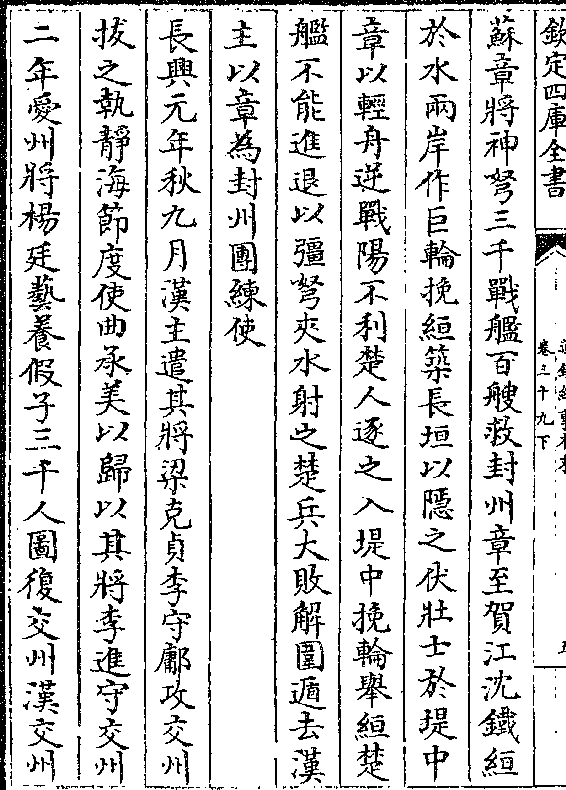 欽定四庫全書
卷三十九下
蘇章將神弩三千戰艦百艘救封州章至賀江沈鐵絙
於水兩岸作巨輪挽絙築長垣以隱之伏壯士於堤中
章以輕舟逆戰陽不利楚人逐之入堤中挽輪舉絙楚
艦不能進退以彊弩夾水射之楚兵大敗解圍遁去漢
主以章為封州團練使
長興元年秋九月漢主遣其將梁克貞李守鄜攻交州
拔之執靜海節度使曲承美以歸以其將李進守交州
二年愛州將楊廷藝養假子三千人圖復交州漢交州